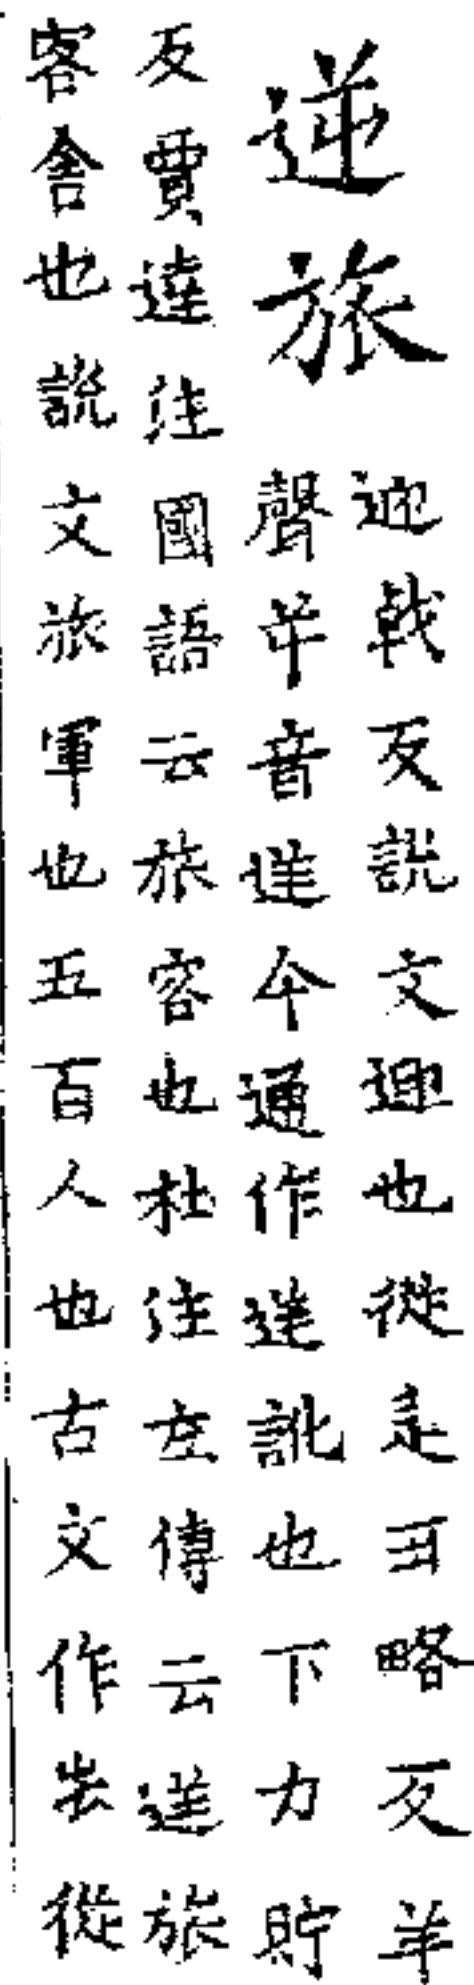 逆旅
迎戟反說文迎也從辵丑略反羊
聲羊音逆今通作逆訛也下力貯
反賈逵注國語云旅客也杜注左傳云逆旅
客舍也說文旅軍也五百人也古文作㫺從